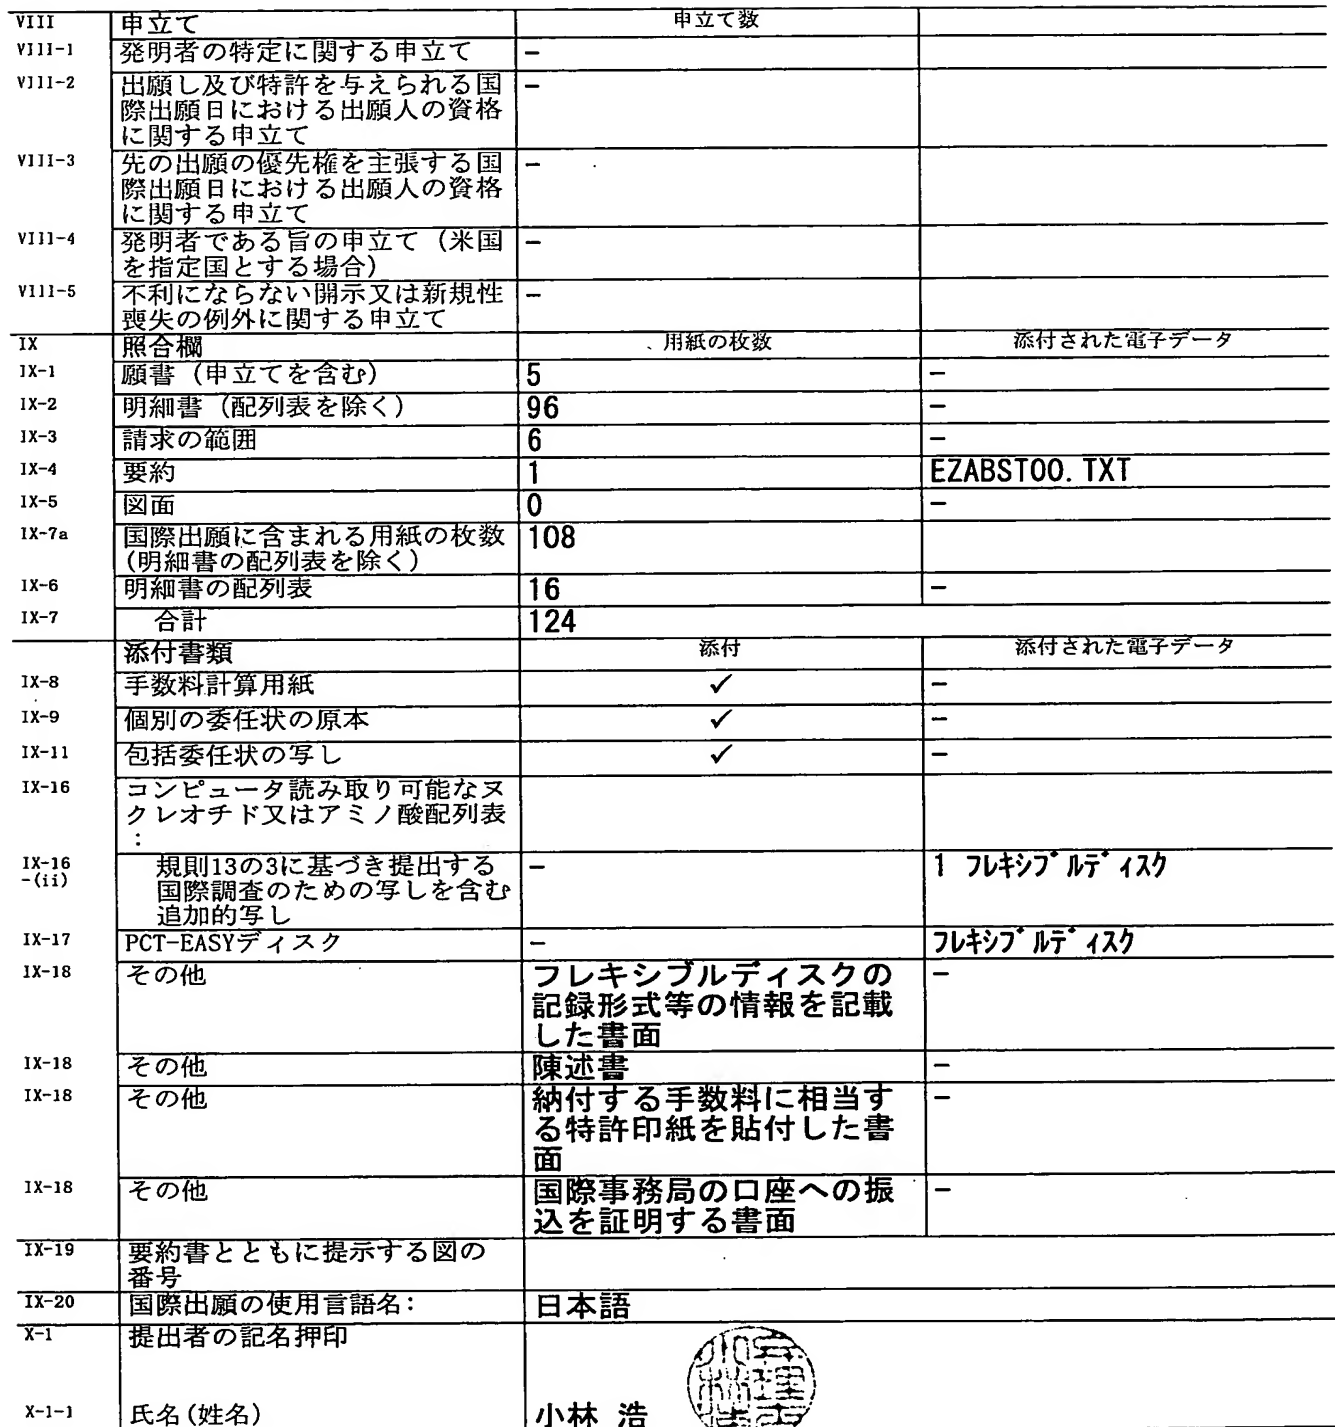 VIII 申立て 申立て数
VIII-1 発明者の特定に関する申立て -
VIII-2 出願し及び特許を与えられる国 -
際出願日における出願人の資格
に関する申立て
VIII-3 先の出願の優先権を主張する国 -
際出願日における出願人の資格
に関する申立て
VIII-4 発明者である旨の申立て（米国 -
を指定国とする場合）
VIII-5 不利にならない開示又は新規性 -
喪失の例外に関する申立て
IX 照合欄 用紙の枚数 添付された電子データ
IX-1 願書（申立てを含む） 5 -
IX-2 明細書（配列表を除く） 96 -
IX-3 請求の範囲 6 -
IX-4 要約 1 EZABST00.TXT
IX-5 図面 0 -
IX-7a 国際出願に含まれる用紙の枚数 108
(明細書の配列表を除く)
IX-6 明細書の配列表 16 -
IX-7 合計 124
添付書類 添付 添付された電子データ
IX-8 手数料計算用紙 ✓ -
IX-9 個別の委任状の原本 ✓ -
IX-11 包括委任状の写し ✓ -
IX-16 コンピュータ読み取り可能なヌ
クレオチド又はアミノ酸配列表
:
IX-16 規則13の3に基づき提出する - 1 フレキシブルディスク
-(ii) 国際調査のための写しを含む
追加的写し
IX-17 PCT-EASYディスク - フレキシブルディスク
IX-18 その他 フレキシブルディスクの -
記録形式等の情報を記載
した書面
IX-18 その他 陳述書 -
IX-18 その他 納付する手数料に相当す -
る特許印紙を貼付した書
面
IX-18 その他 国際事務局の口座への振 -
込を証明する書面
IX-19 要約書とともに提示する図の
番号
IX-20 国際出願の使用言語名: 日本語
X-1 提出者の記名押印
X-1-1 氏名(姓名) 小林 浩